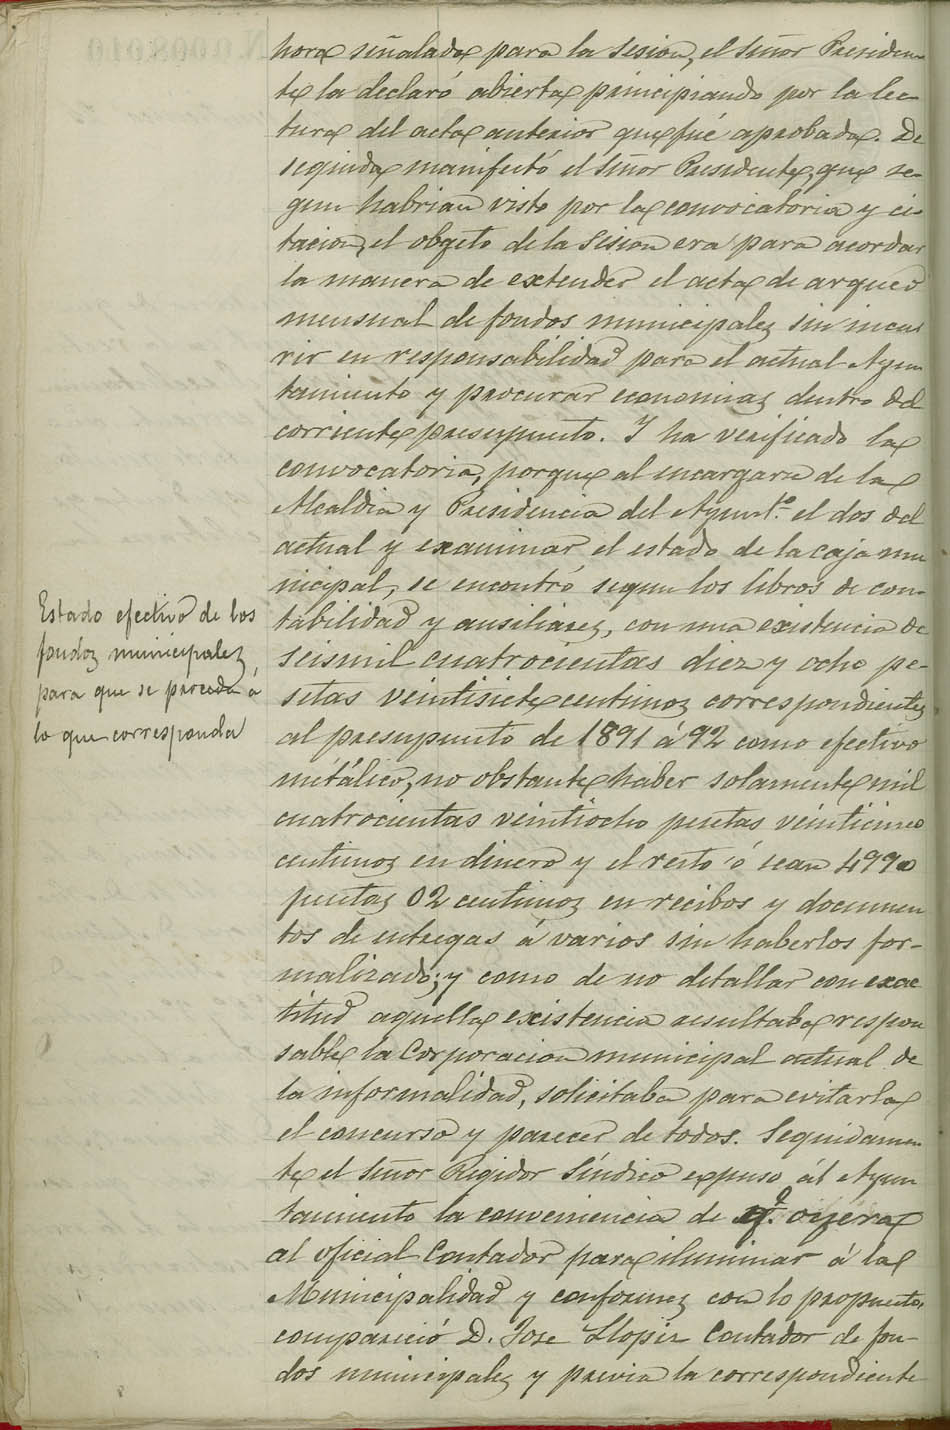 hora señalada para la sesion, el Señor Presiden
te la declaró abierta principiando por la lec-
tura del acta anterior que fué aprobada. De
seguida manifestó el Señor Presidente, que se-
gun habrian visto por la convocatoria y ci-
tacion, el obgeto de la sesion era para acordar
la manera de extender el acta de arqueo
mensual de fondos municipales sin incur
rir en responsabilidad para el actual Ayun
tamiento y procurar economias dentro del
corriente presupuesto. Y ha verificado la
convocatoria, porque al encargarse de la
Alcaldia y Presidencia del Ayunt.º el dos del
actual y examinar el estado de la caja mu
nicipal, se encontró segun los libros de con-
tabilidad y ausiliares, con una existencia de
seismil cuatrocientas diez y ocho pe-
setas veintisiete centimos correspondientes
al presupuesto de 1891 á 92 como efectivo
metálico, no obstante haber solamente mil
cuatrocientas veintiocho pesetas veinticinco
centimos en dinero y el resto ó sean 4990
pesetas 02 centimos en recibos y documen
tos de entregas á varios sin haberlos for-
malizado; y como de no detallar con exac
titud aquella existencia resultaba respon
sable la Corporacion municipal actual de
la informalidad, solicitaba para evitarla
el concurso y parecer de todos. Seguidamen
te el Señor Regidor Síndico expuso ál Ayun
tamiento la conveniencia de q.e oyera
al oficial Contador para iluminar á la
Municipalidad y conformes con lo propuesto,
compareció D. Jose Llopis Contador de fon-
dos municipales y previa la correspondiente
Estado efectivo de los
fondos municipales,
para que se proceda á
lo que corresponda